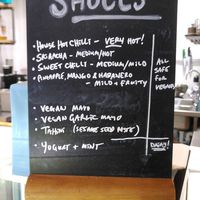 SAUCES
• HOUSE HOT CHILLI - VERY HOT!
• SRIRACHA - MEDIUM/HOT
• SWEET CHILLI - MEDIUM/MILD
• PINEAPPLE, MANGO & HABANERO
- MILD + FRUITY
• VEGAN MAYO
• VEGAN GARLIC MAYO
• TAHINI (SESAME SEED PASTE)
• YOGURT + MINT
ALL
SAFE
FOR
VEGANS
DAIRY!